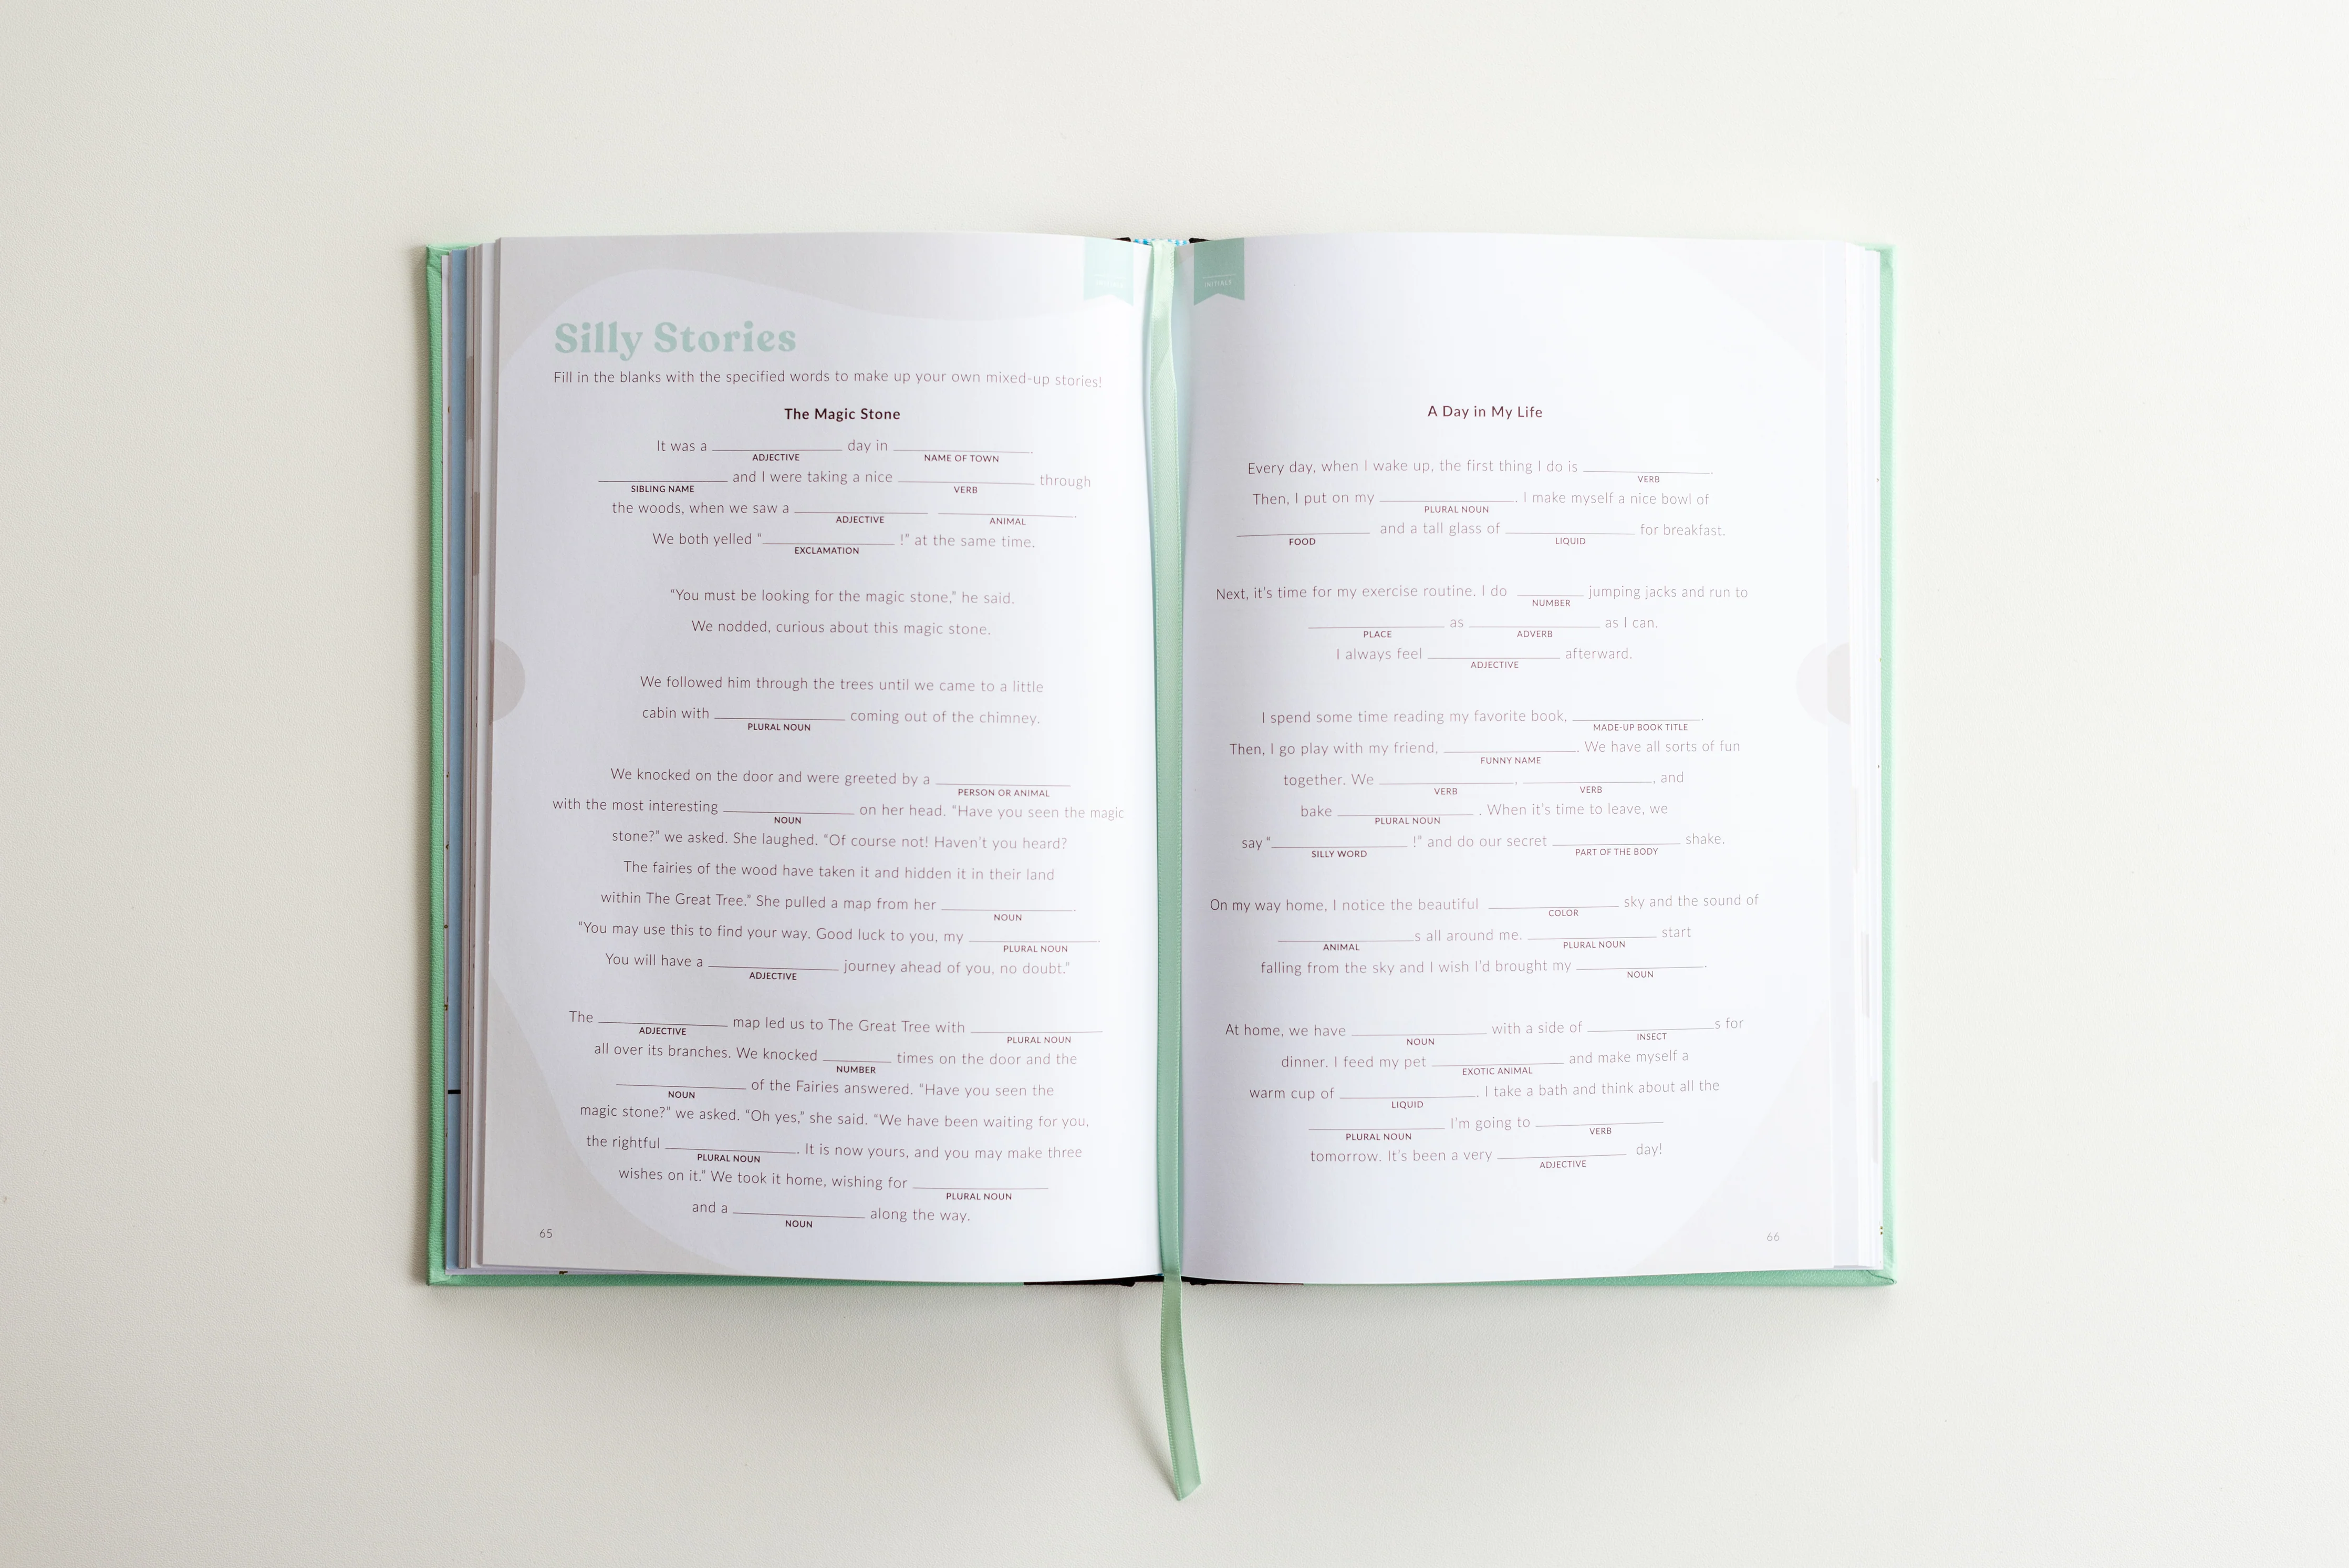 INITIALS
Silly Stories
Fill in the blanks with the specified words to make up your own mixed-up stories!
The Magic Stone
It was a ____________ day in ____________.
ADJECTIVE NAME OF TOWN
____________ and I were taking a nice ____________ through
SIBLING NAME VERB
the woods, when we saw a ____________ ____________.
ADJECTIVE ANIMAL
We both yelled “____________ !” at the same time.
EXCLAMATION
“You must be looking for the magic stone,” he said.
We nodded, curious about this magic stone.
We followed him through the trees until we came to a little
cabin with ____________ coming out of the chimney.
PLURAL NOUN
We knocked on the door and were greeted by a ____________
PERSON OR ANIMAL
with the most interesting ____________ on her head. “Have you seen the magic
NOUN
stone?” we asked. She laughed. “Of course not! Haven’t you heard?
The fairies of the wood have taken it and hidden it in their land
within The Great Tree.” She pulled a map from her ____________.
NOUN
“You may use this to find your way. Good luck to you, my ____________.
PLURAL NOUN
You will have a ____________ journey ahead of you, no doubt.”
ADJECTIVE
The ____________ map led us to The Great Tree with ____________
ADJECTIVE PLURAL NOUN
all over its branches. We knocked ______ times on the door and the
NUMBER
____________ of the Fairies answered. “Have you seen the
NOUN
magic stone?” we asked. “Oh yes,” she said. “We have been waiting for you,
the rightful ____________. It is now yours, and you may make three
PLURAL NOUN
wishes on it.” We took it home, wishing for ____________
PLURAL NOUN
and a ____________ along the way.
NOUN
65
INITIALS
A Day in My Life
Every day, when I wake up, the first thing I do is ____________.
VERB
Then, I put on my ____________. I make myself a nice bowl of
PLURAL NOUN
____________ and a tall glass of ____________ for breakfast.
FOOD LIQUID
Next, it’s time for my exercise routine. I do ______ jumping jacks and run to
NUMBER
____________ as ____________ as I can.
PLACE ADVERB
I always feel ____________ afterward.
ADJECTIVE
I spend some time reading my favorite book, ____________.
MADE-UP BOOK TITLE
Then, I go play with my friend, ____________. We have all sorts of fun
FUNNY NAME
together. We ____________, ____________, and
VERB VERB
bake ____________ . When it’s time to leave, we
PLURAL NOUN
say “____________ !” and do our secret ____________ shake.
SILLY WORD PART OF THE BODY
On my way home, I notice the beautiful ____________ sky and the sound of
COLOR
____________s all around me. ____________ start
ANIMAL PLURAL NOUN
falling from the sky and I wish I’d brought my ____________.
NOUN
At home, we have ____________ with a side of ____________s for
NOUN INSECT
dinner. I feed my pet ____________ and make myself a
EXOTIC ANIMAL
warm cup of ____________. I take a bath and think about all the
LIQUID
____________ I’m going to ____________
PLURAL NOUN VERB
tomorrow. It’s been a very ____________ day!
ADJECTIVE
66